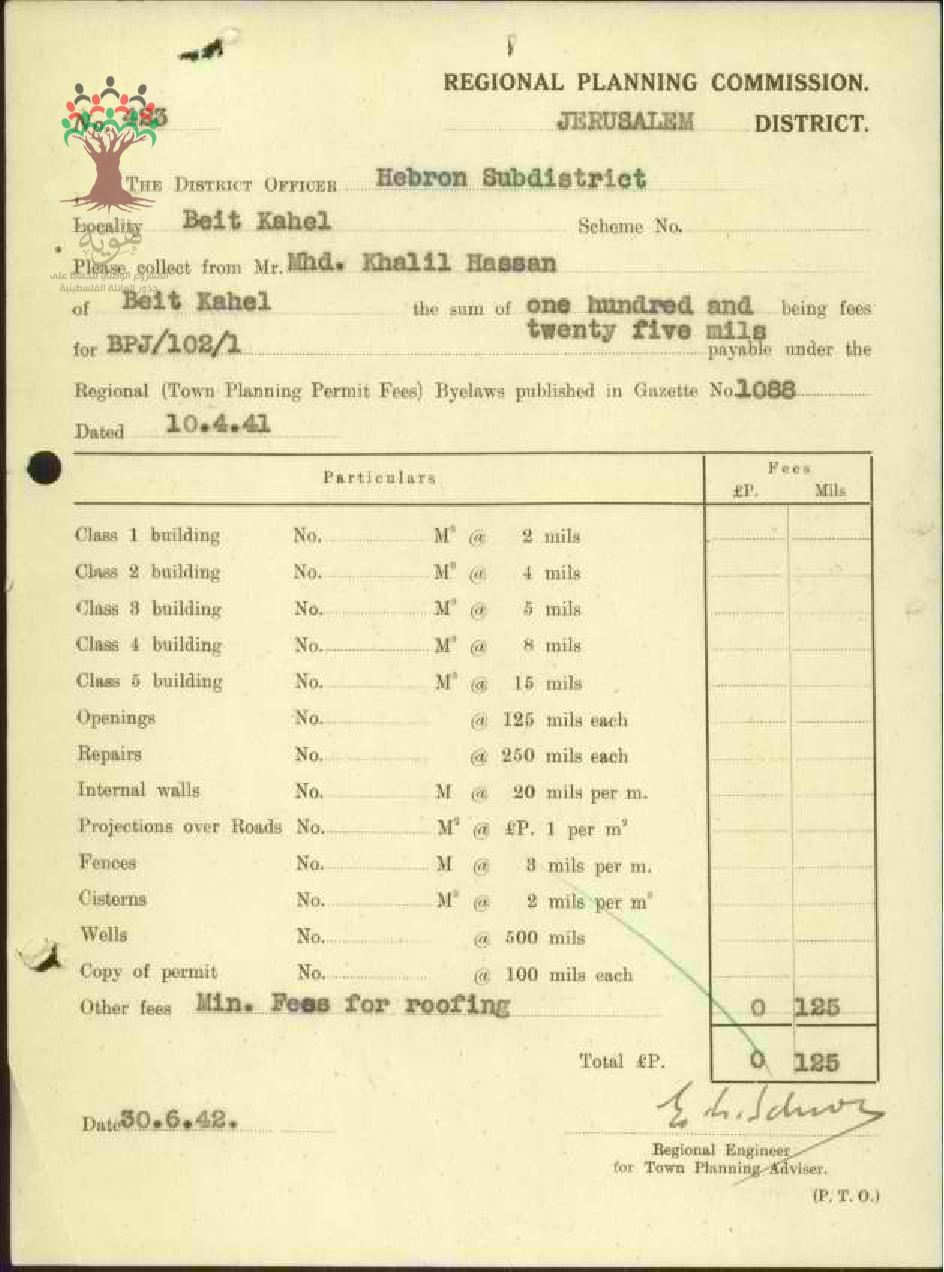 REGIONAL PLANNING COMMISSION.
No. 423 JERUSALEM DISTRICT.
THE DISTRICT OFFICER Hebron Subdistrict
Locality Beit Kahel Scheme No.
هوية
Please collect from Mr. Mhd. Khalil Hassan
المشروع الوطني للحفاظ على
جذور العائلة الفلسطينية
of Beit Kahel the sum of one hundred and being fees
twenty five mils
for BPJ/102/1 payable under the
Regional (Town Planning Permit Fees) Byelaws published in Gazette No. 1088
Dated 10.4.41
Particulars Fees
£P. Mils
Class 1 building No. M² @ 2 mils
Class 2 building No. M² @ 4 mils
Class 3 building No. M² @ 5 mils
Class 4 building No. M² @ 8 mils
Class 5 building No. M² @ 15 mils
Openings No. @ 125 mils each
Repairs No. @ 250 mils each
Internal walls No. M @ 20 mils per m.
Projections over Roads No. M² @ £P. 1 per m²
Fences No. M @ 3 mils per m.
Cisterns No. M³ @ 2 mils per m³
Wells No. @ 500 mils
Copy of permit No. @ 100 mils each
Other fees Min. Fees for roofing 0 125
Total £P. 0 125
Date 30.6.42.
Regional Engineer
for Town Planning Adviser.
(P. T. O.)